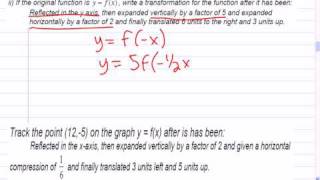 ii) If the original function is y = f(x), write a transformation for the function after it has been:
Reflected in the y axis, then expanded vertically by a factor of 5 and expanded
horizontally by a factor of 2 and finally translated 6 units to the right and 3 units up.
y = f(-x)
y = 5f(-1/2x
Track the point (12,-5) on the graph y = f(x) after is has been:
Reflected in the x-axis, then expanded vertically by a factor of 2 and given a horizontal
compression of 1/6 and finally translated 3 units left and 5 units up.